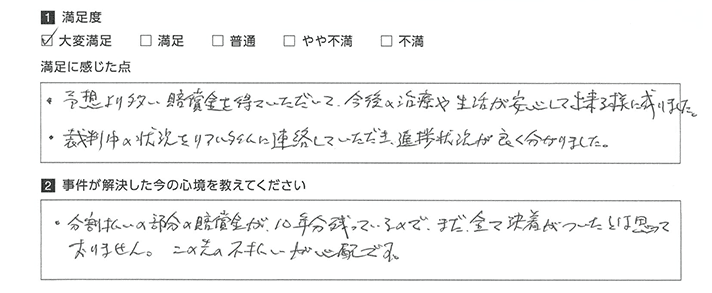 1 満足度
☑ 大変満足 □ 満足 □ 普通 □ やや不満 □ 不満
満足に感じた点
・予想より多い賠償金を得ていただいて、今後の治療や生活が安心して出来る様に成りました。
・裁判中の状況をリアルタイムに連絡していただき、進捗状況が良く分かりました。
2 事件が解決した今の心境を教えてください
・分割払いの部分の賠償金が、10年分残っているので、まだ、全て決着がついたとは思って
おりません。この先の不払いが心配です。